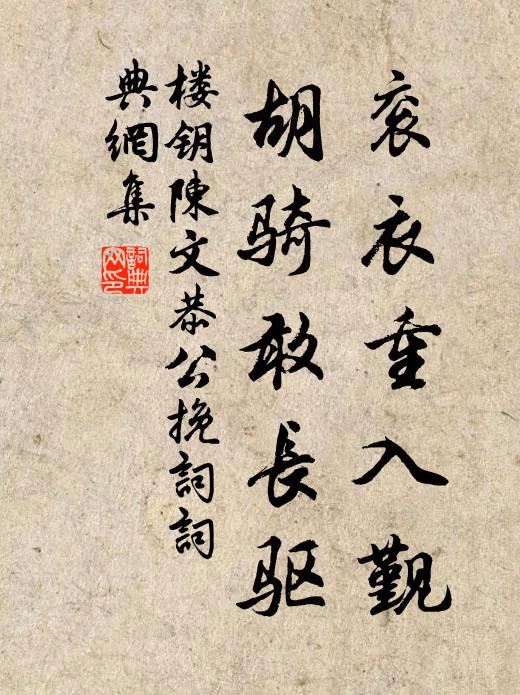 衮衣重入觐
胡骑敢長驱
楼钥陳文恭公挽詞詞
典網集
詞典网印